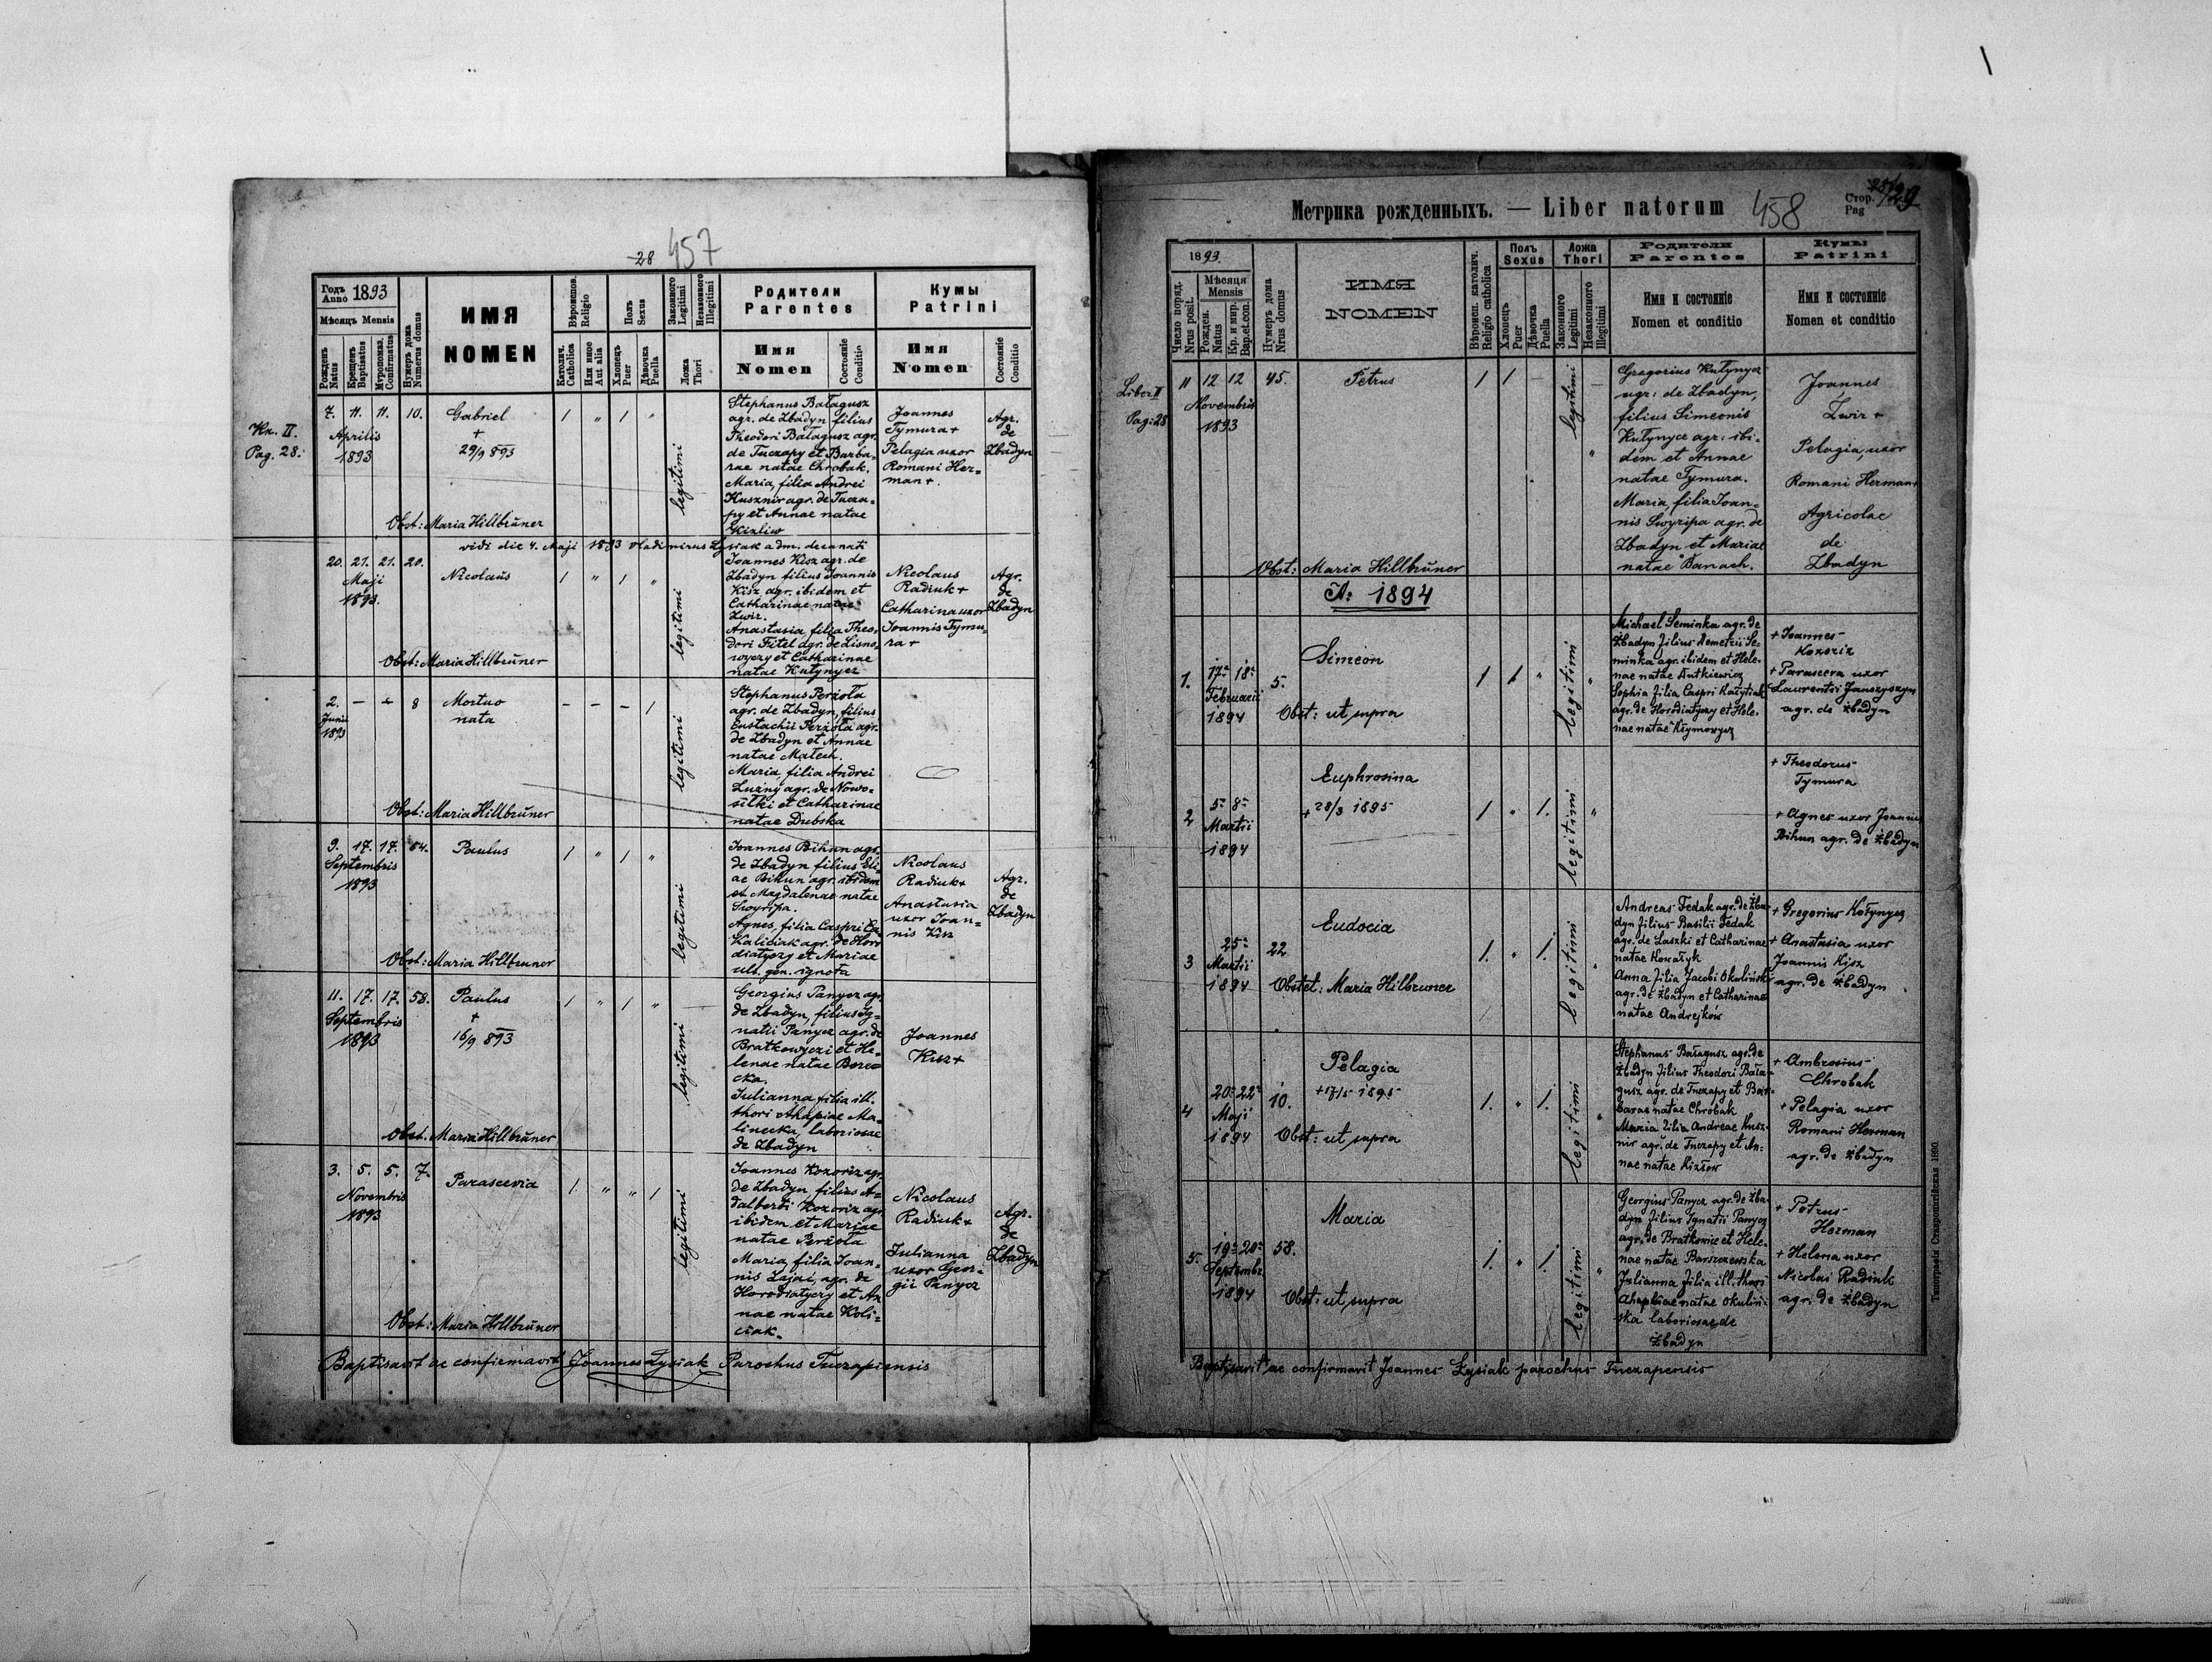 28 457
Годъ Anno 1893
Мѣсяцъ Mensis
Рожденъ Natus
Крещенъ Baptisatus
Мѵропомаз. Confirmatus
Нумеръ дома Numerus domus
ИМЯ
NOMEN
Вѣроиспов. Religio
Католич. Catholica
Или иное Aut alia
Полъ Sexus
Хлопецъ Puer
Дѣвочка Puella
Законного Legitimi
Незаконного Illegitimi
Ложа Thori
Родители
Parentes
Имя
Nomen
Состояніе Conditio
Кумы
Patrini
Имя
Nomen
Состояніе Conditio
Кн. II.
Pag. 28.
7. 11. 11. 10.
Aprilis
1893
Gabriel
+
29/9 893
Obst: Maria Hillbrüner
1 " 1 "
legitimi
Stephanus Bałagusz
agr. de Zbadyn filius
Theodori Bałagusz agr.
de Tuczapy et Barba-
rae natae Chrobak.
Maria, filia Andrei
Kusznir agr. de Tucza-
py et Annae natae
Kizliw
Joannes
Tymura +
Pelagia uxor
Romani Her-
man +.
Agr.
de
Zbadyn
vidi die 4. Maji 1893 Vladimirus Lysiak adm. decanati
20. 21. 21. 20.
Maji
1893.
Nicolaus
Obst: Maria Hillbrüner
1 " 1 "
legitimi
Joannes Kisz agr. de
Zbadyn filius Joannis
Kisz agr. ibidem et
Catharinae natae
Zwir.
Anastasia, filia Theo-
dori Fitel agr. de Lisno-
wyczy et Catharinae
natae Kutynycz
Nicolaus
Radiuk +
Catharina uxor
Joannis Tymu-
ra +
Agr.
de
Zbadyn
2. — — 8
Junii
1893
Mortuo
nata
Obst: Maria Hillbrüner
— — — 1
legitimi
Stephanus Perżoła
agr. de Zbadyn, filius
Eustachii Perżoła agr.
de Zbadyn et Annae
natae Matech.
Maria, filia Andrei
Luzny agr. de Nowo-
siłki et Catharinae
natae Dubska
9. 17. 17. 54.
Septembris
1893
Paulus
Obst: Maria Hillbruner
1 " 1 "
legitimi
Joannes Bihun agr.
de Zbadyn filius Eli-
ae Bihun agr. ibidem
et Magdalenae natae
Swyripa.
Agnes, filia Caspri
Kaliciak agr. de Horo
diatyczy et Mariae
ult. gen. ignota
Nicolaus
Radiuk +
Anastasia
uxor Joan-
nis Kisz
Agr.
de
Zbadyn
11. 17. 17. 58.
Septembris
1893
Paulus
+
16/9 893
Obst. Maria Hillbrüner
1 " 1 "
legitimi
Georgius Panycz agr.
de Zbadyn, filius Ig-
natii Panycz agr. de
Bratkowyczi et He-
lenae natae Borec-
cka.
Julianna filia ill.
thori Ahapiae Ma-
linecka, laboriosae
de Zbadyn
Joannes
Kisz +
3. 5. 5. 7.
Novembris
1893
Parascevia
Obst: Maria Hillbrüner
1. " " 1
legitimi
Joannes Kozoriz agr.
de Zbadyn filius A-
dalberti Kozoriz agr.
ibidem et Mariae
natae Perżoła
Maria, filia Joan-
nis Zajac, agr. de
Horodiatyczy et An
nae natae Koli-
ciak.
Nicolaus
Radiuk +
Julianna
uxor Geor-
gii Panycz
Agr.
de
Zbadyn
Baptisavit ac confirmavit Joannes Lysiak Parochus Tuczapiensis
Метрика рожденныхъ. — Liber natorum 458
Стор. Pag 29
1893.
Число поряд. Nrus posit.
Мѣсяця Mensis
Рожден. Natus
Кр. и мир. Bap.et.con.
Нумеръ дома Nrus domus
ИМЯ
NOMEN
Вѣроисп. католич. Religio catholica
Полъ Sexus
Хлопецъ Puer
Дѣвочка Puella
Ложа Thori
Законного Legitimi
Незаконного Illegitimi
Родители
Parentes
Имя и состояніе
Nomen et conditio
Кумы
Patrini
Имя и состояніе
Nomen et conditio
Liber II
Pag: 28
11 12 12 45.
Novembris
1893
Petrus
Obst: Maria Hillbrüner
1 1 —
legitimi
Gregorius Kutynycz
agr: de Zbadyn,
filius Simeonis
Kutynycz agr: ibi-
dem et Annae
natae Tymura.
Maria, filia Joan-
nis Swyripa agr. de
Zbadyn et Mariae
natae Banach.
Joannes
Zwir +
Pelagia, uxor
Romani Herman +
Agricolae
de
Zbadyn
A: 1894
1. 17. 18. 5.
Februarii
1894
Simeon
Obst: ut supra
1 1 "
legitimi
Michael Seminka agr. de
Zbadyn filius Demetrii Se-
minka agr. ibidem et Hele-
nae natae Antkiewicz
Sophia filia Caspri Kołytiak
agr. de Horodiatyczy et Hele-
nae natae Klymowycz
+ Joannes
Kozoriz
+ Parascera uxor
Laurentii Janszyszyn
agr. de Zbadyn
2 5. 8.
Martii
1894
Euphrosina
+ 28/3 1895
1 " 1.
legitimi
+ Theodorus
Tymura
+ Agnes uxor Joannis
Bihun agr. de Zbadyn
3 25. 22
Martii
1894
Eudocia
Obstet: Maria Hilbruner
1. " 1.
legitimi
Andreas Fedak agr. de Zba-
dyn filius Basilii Fedak
agr. de Laszki et Catharinae
natae Kowałyk
Anna filia Jacobi Okoliński
agr. de Zbadyn et Catharinae
natae Andrejków
+ Gregorius Kotynycz
+ Anastasia uxor
Joannis Kysz
agr. de Zbadyn
4 20. 22. 10.
Maji
1894
Pelagia
+ 17/5 1895
Obst: ut supra
1. " 1.
legitimi
Stephanus Bałagusz agr. de
Zbadyn filius Theodori Bała-
gusz agr. de Tuczapy et Bar-
barae natae Chrobak
Maria filia Andreae Kusz-
nir agr. de Tuczapy et An-
nae natae Kizłow
+ Ambrosius
Chrobak
+ Pelagia uxor
Romani Herman
agr. de Zbadyn
5. 19. 20. 58.
Septembr.
1894
Maria
Obst: ut supra
1. " 1.
legitimi
Georgius Panycz agr. de Zba-
dyn filius Ignatii Panycz
agr. de Bratkowice et Hele-
nae natae Barszczewska
Julianna filia ill. thori
Ahaphiae natae Okuliń-
ska laboriosae de
Zbadyn
+ Petrus
Herman
+ Helena uxor
Nicolai Radiuk
agr. de Zbadyn
Baptisavit ac confirmavit Joannes Łysiak parochus Tuczapensis
Типографія Ставропигійская 1890.